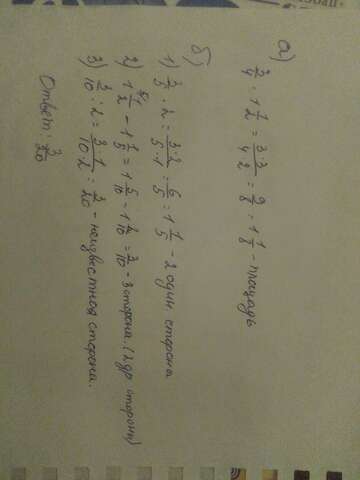 а)
3/4 · 1 1/2 = 3·3/4·2 = 9/8 = 1 1/8 - площадь
б)
1) 3/5 · 2 = 3·2/5·1 = 6/5 = 1 1/5 - 2 один. сторона
2) 1 1/2 - 1 1/5 = 1 5/10 - 1 2/10 = 3/10 - 3 сторона. (2 др стороны)
3) 3/10 : 2 = 3·1/10·2 = 3/20 - неизвестная сторона.
Ответ: 3/20